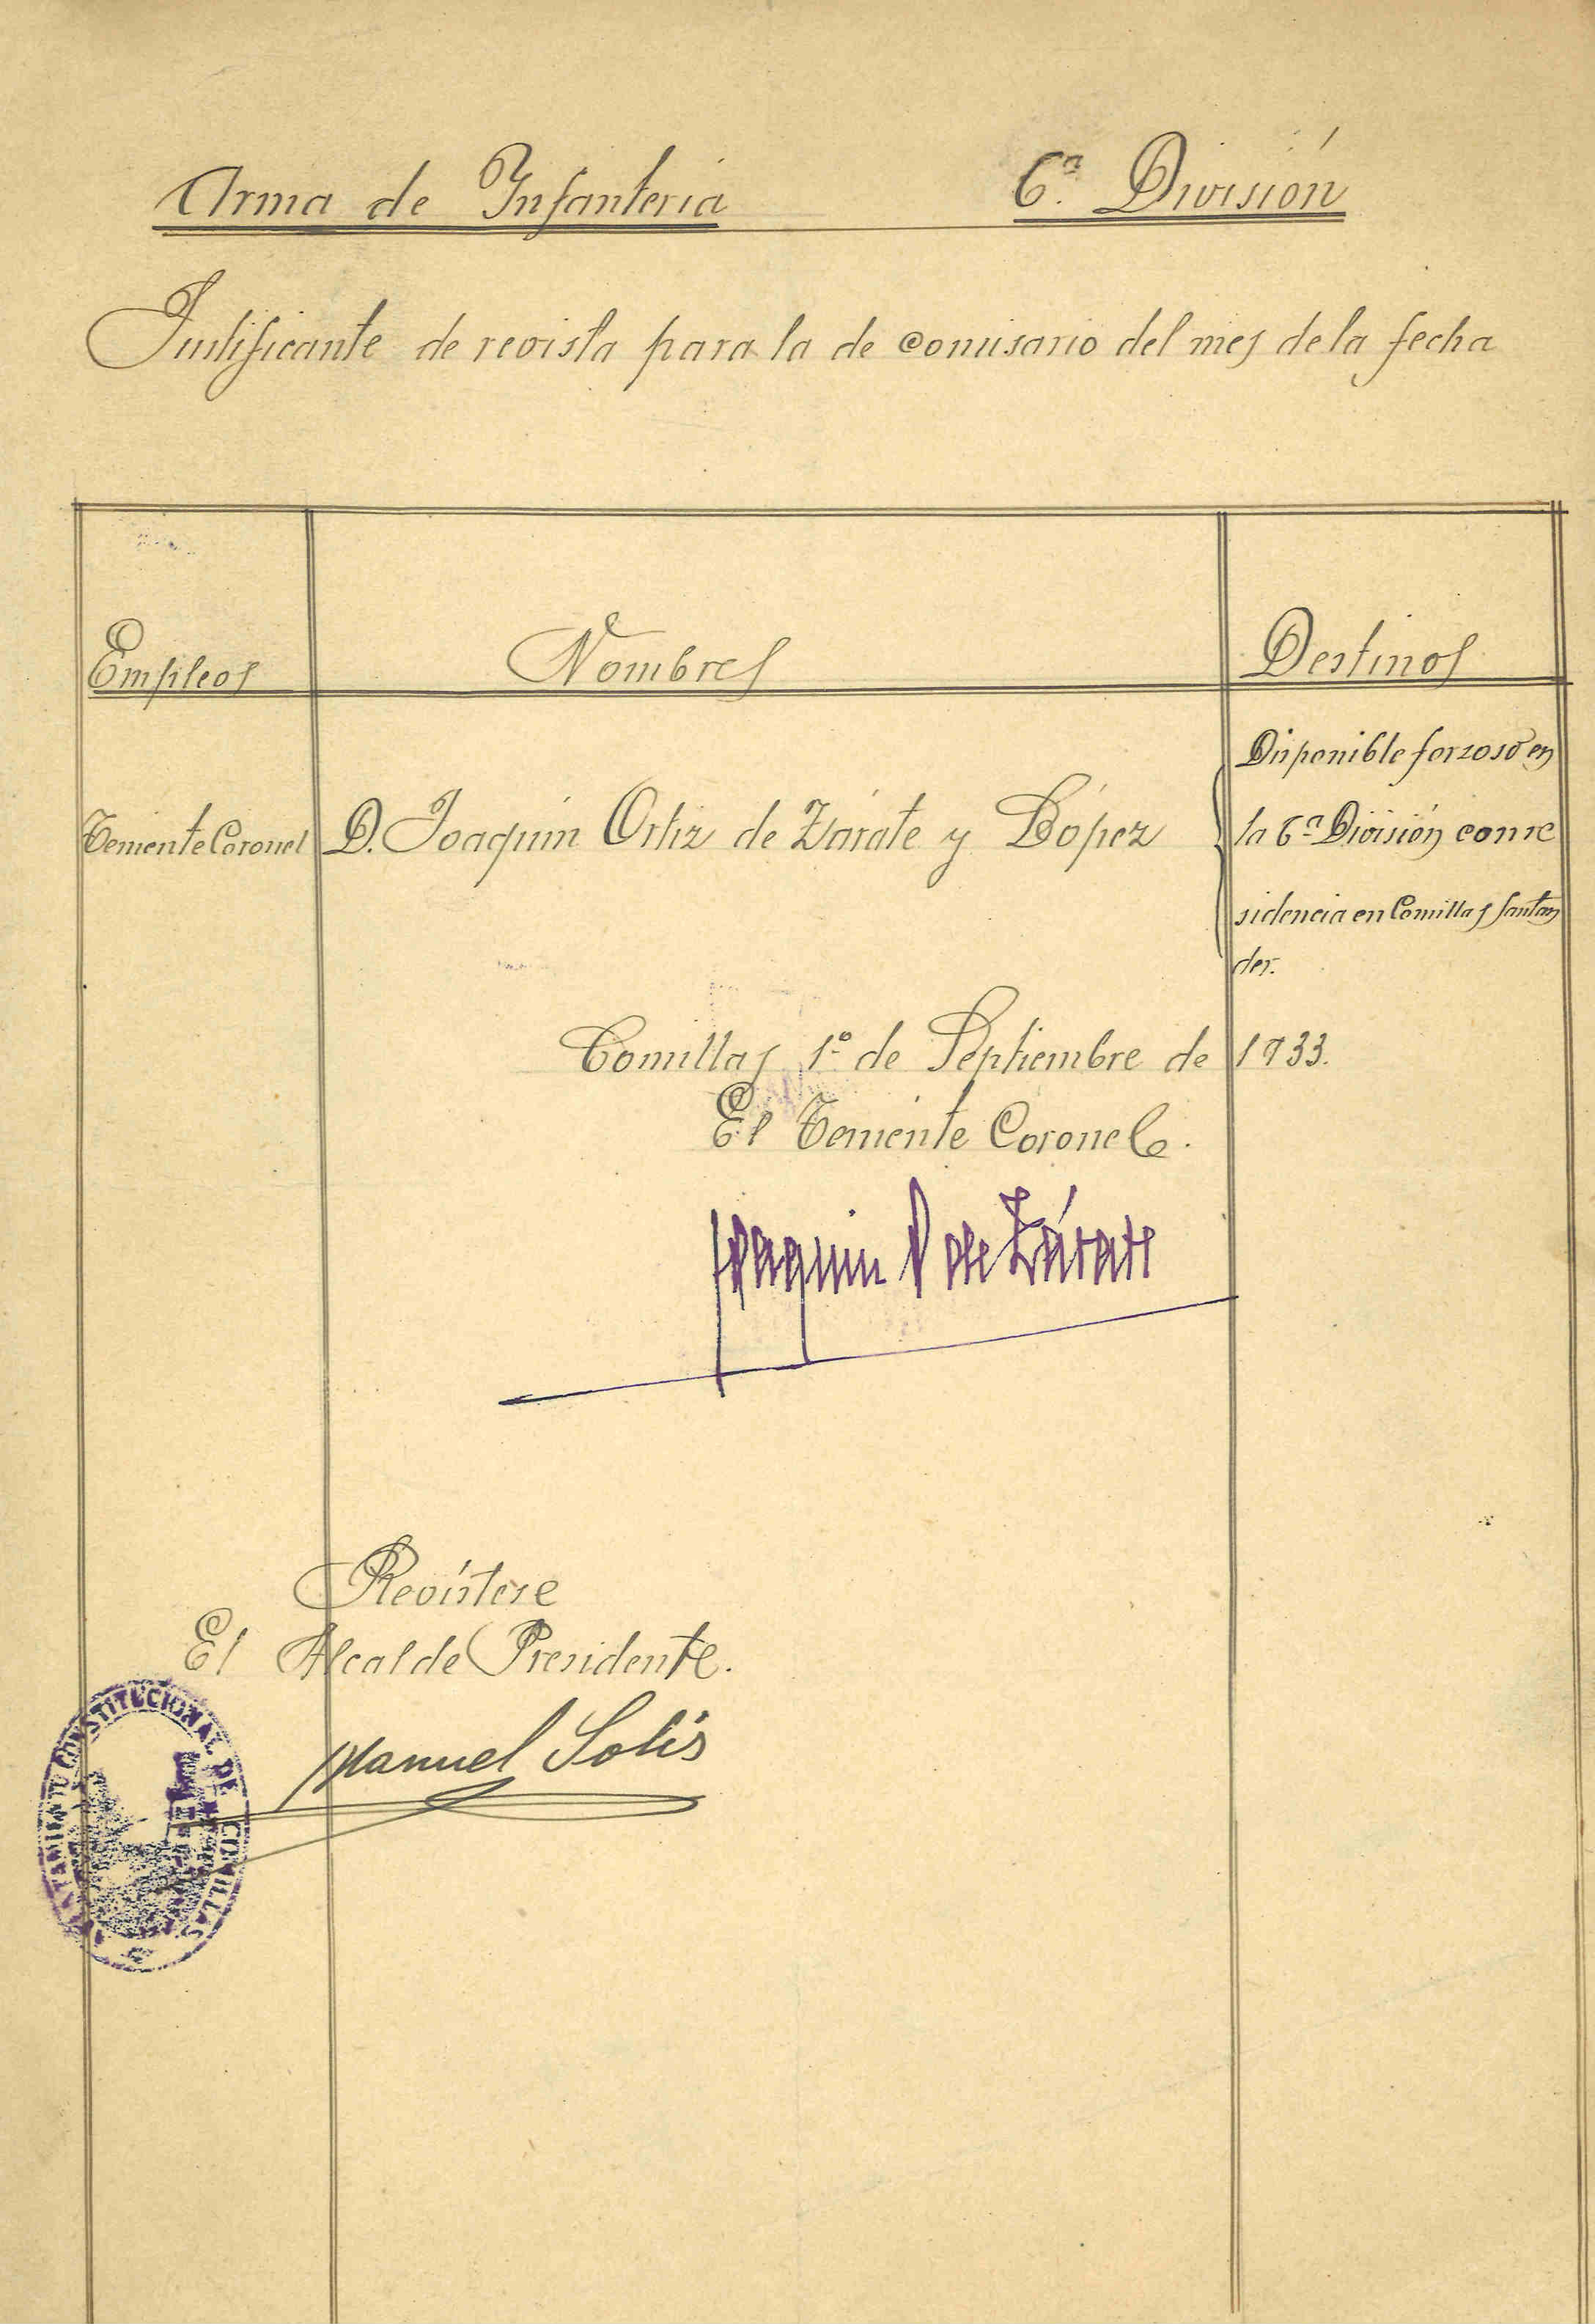 Arma de Infanteria 6ª División
Justificante de revista para la de comisario del mes de la fecha
Empleos Nombres Destinos
Teniente Coronel D. Joaquin Ortiz de Zárate y López
Disponible forzoso en
la 6ª División con re
sidencia en Comillas Santan
der.
Comillas 1º de Septiembre de 1933.
El Teniente Coronel.
Joaquin O de Zárate
Revístese
El Alcalde Presidente.
Manuel Solís
AYUNTAMIENTO CONSTITUCIONAL DE COMILLAS